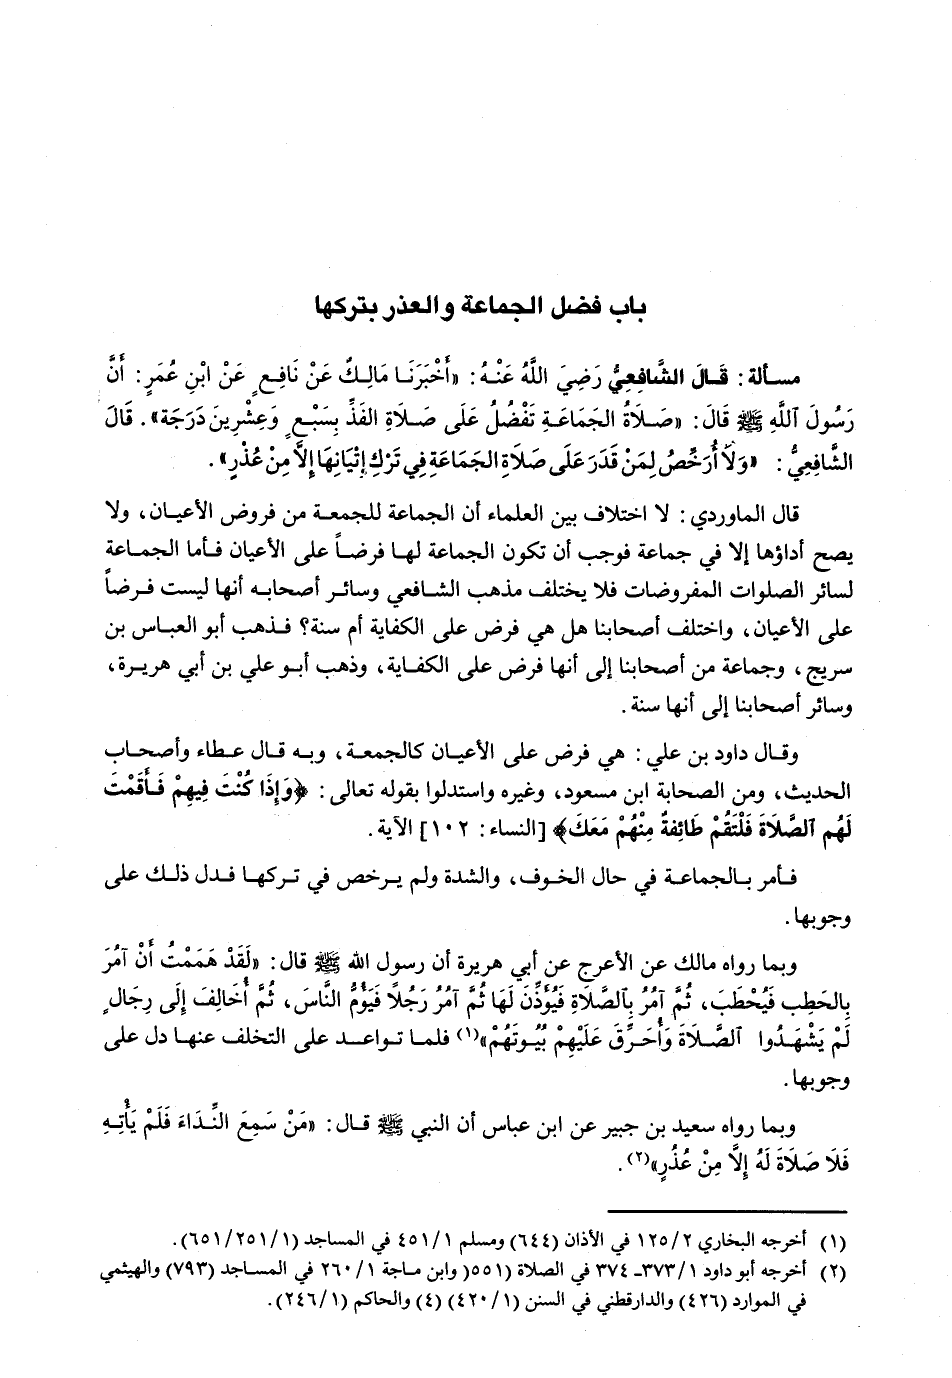 باب فضل الجماعة والعذر بتركها
مسألة: قَالَ الشَّافِعِيُّ رَضِيَ اللَّهُ عَنْهُ: «أَخْبَرَنَا مَالِكٌ عَنْ نَافِعٍ عَنْ ابْنِ عُمَرٍ: أَنَّ
رَسُولَ اللَّهِ ﷺ قَالَ: «صَلاَةُ الجَمَاعَةِ تَفْضُلُ عَلَى صَلاَةِ الفَذِّ بِسَبْعٍ وَعِشْرِينَ دَرَجَة». قَالَ
الشَّافِعِيُّ: «وَلاَ أُرَخِّصُ لِمَنْ قَدَرَ عَلَى صَلاَةِ الجَمَاعَةِ فِي تَرْكِ إِتْيَانِهَا إِلاَّ مِنْ عُذْرٍ».
قال الماوردي: لا اختلاف بين العلماء أن الجماعة للجمعة من فروض الأعيان، ولا
يصح أداؤها إلا في جماعة فوجب أن تكون الجماعة لها فرضاً على الأعيان فأما الجماعة
لسائر الصلوات المفروضات فلا يختلف مذهب الشافعي وسائر أصحابه أنها ليست فرضاً
على الأعيان، واختلف أصحابنا هل هي فرض على الكفاية أم سنة؟ فذهب أبو العباس بن
سريج، وجماعة من أصحابنا إلى أنها فرض على الكفاية، وذهب أبو علي بن أبي هريرة،
وسائر أصحابنا إلى أنها سنة.
وقال داود بن علي: هي فرض على الأعيان كالجمعة، وبه قال عطاء وأصحاب
الحديث، ومن الصحابة ابن مسعود، وغيره واستدلوا بقوله تعالى: ﴿وَإِذَا كُنْتَ فِيهِمْ فَأَقَمْتَ
لَهُم ٱلصَّلاَةَ فَلْتَقُمْ طَائِفةٌ مِنْهُمْ مَعَكَ﴾ [النساء: ١٠٢] الآية.
فأمر بالجماعة في حال الخوف، والشدة ولم يرخص في تركها فدل ذلك على
وجوبها.
وبما رواه مالك عن الأعرج عن أبي هريرة أن رسول الله ﷺ قال: «لَقَدْ هَمَمْتُ أَنْ آمُرَ
بِالحَطِب فَيُحْطَبَ، ثُمَّ آمُرُ بِٱلصَّلاَةِ فَيُؤَذَّنَ لَهَا ثُمَّ آمُرُ رَجُلاً فَيَؤُمُّ النَّاسَ، ثُمَّ أُخَالِفَ إِلَى رِجَالٍ
لَمْ يَشْهَدُوا ٱلصَّلاَةَ وَأُحَرِّقَ عَلَيْهِمْ بُيُوتَهُمْ»(١) فلما تواعد على التخلف عنها دل على
وجوبها.
وبما رواه سعيد بن جبير عن ابن عباس أن النبي ﷺ قال: «مَنْ سَمِعَ النِّدَاءَ فَلَمْ يَأْتِهِ
فَلاَ صَلاَةَ لَهُ إِلاَّ مِنْ عُذُرٍ»(٢).
(١) أخرجه البخاري ١٢٥/٢ في الأذان (٦٤٤) ومسلم ٤٥١/١ في المساجد (٦٥١/٢٥١/١).
(٢) أخرجه أبو داود ٣٧٣/١ـ ٣٧٤ في الصلاة (٥٥١( وابن ماجة ٢٦٠/١ في المساجد (٧٩٣) والهيثمي
في الموارد (٤٢٦) والدارقطني في السنن (٤٢٠/١) (٤) والحاكم (٢٤٦/١).